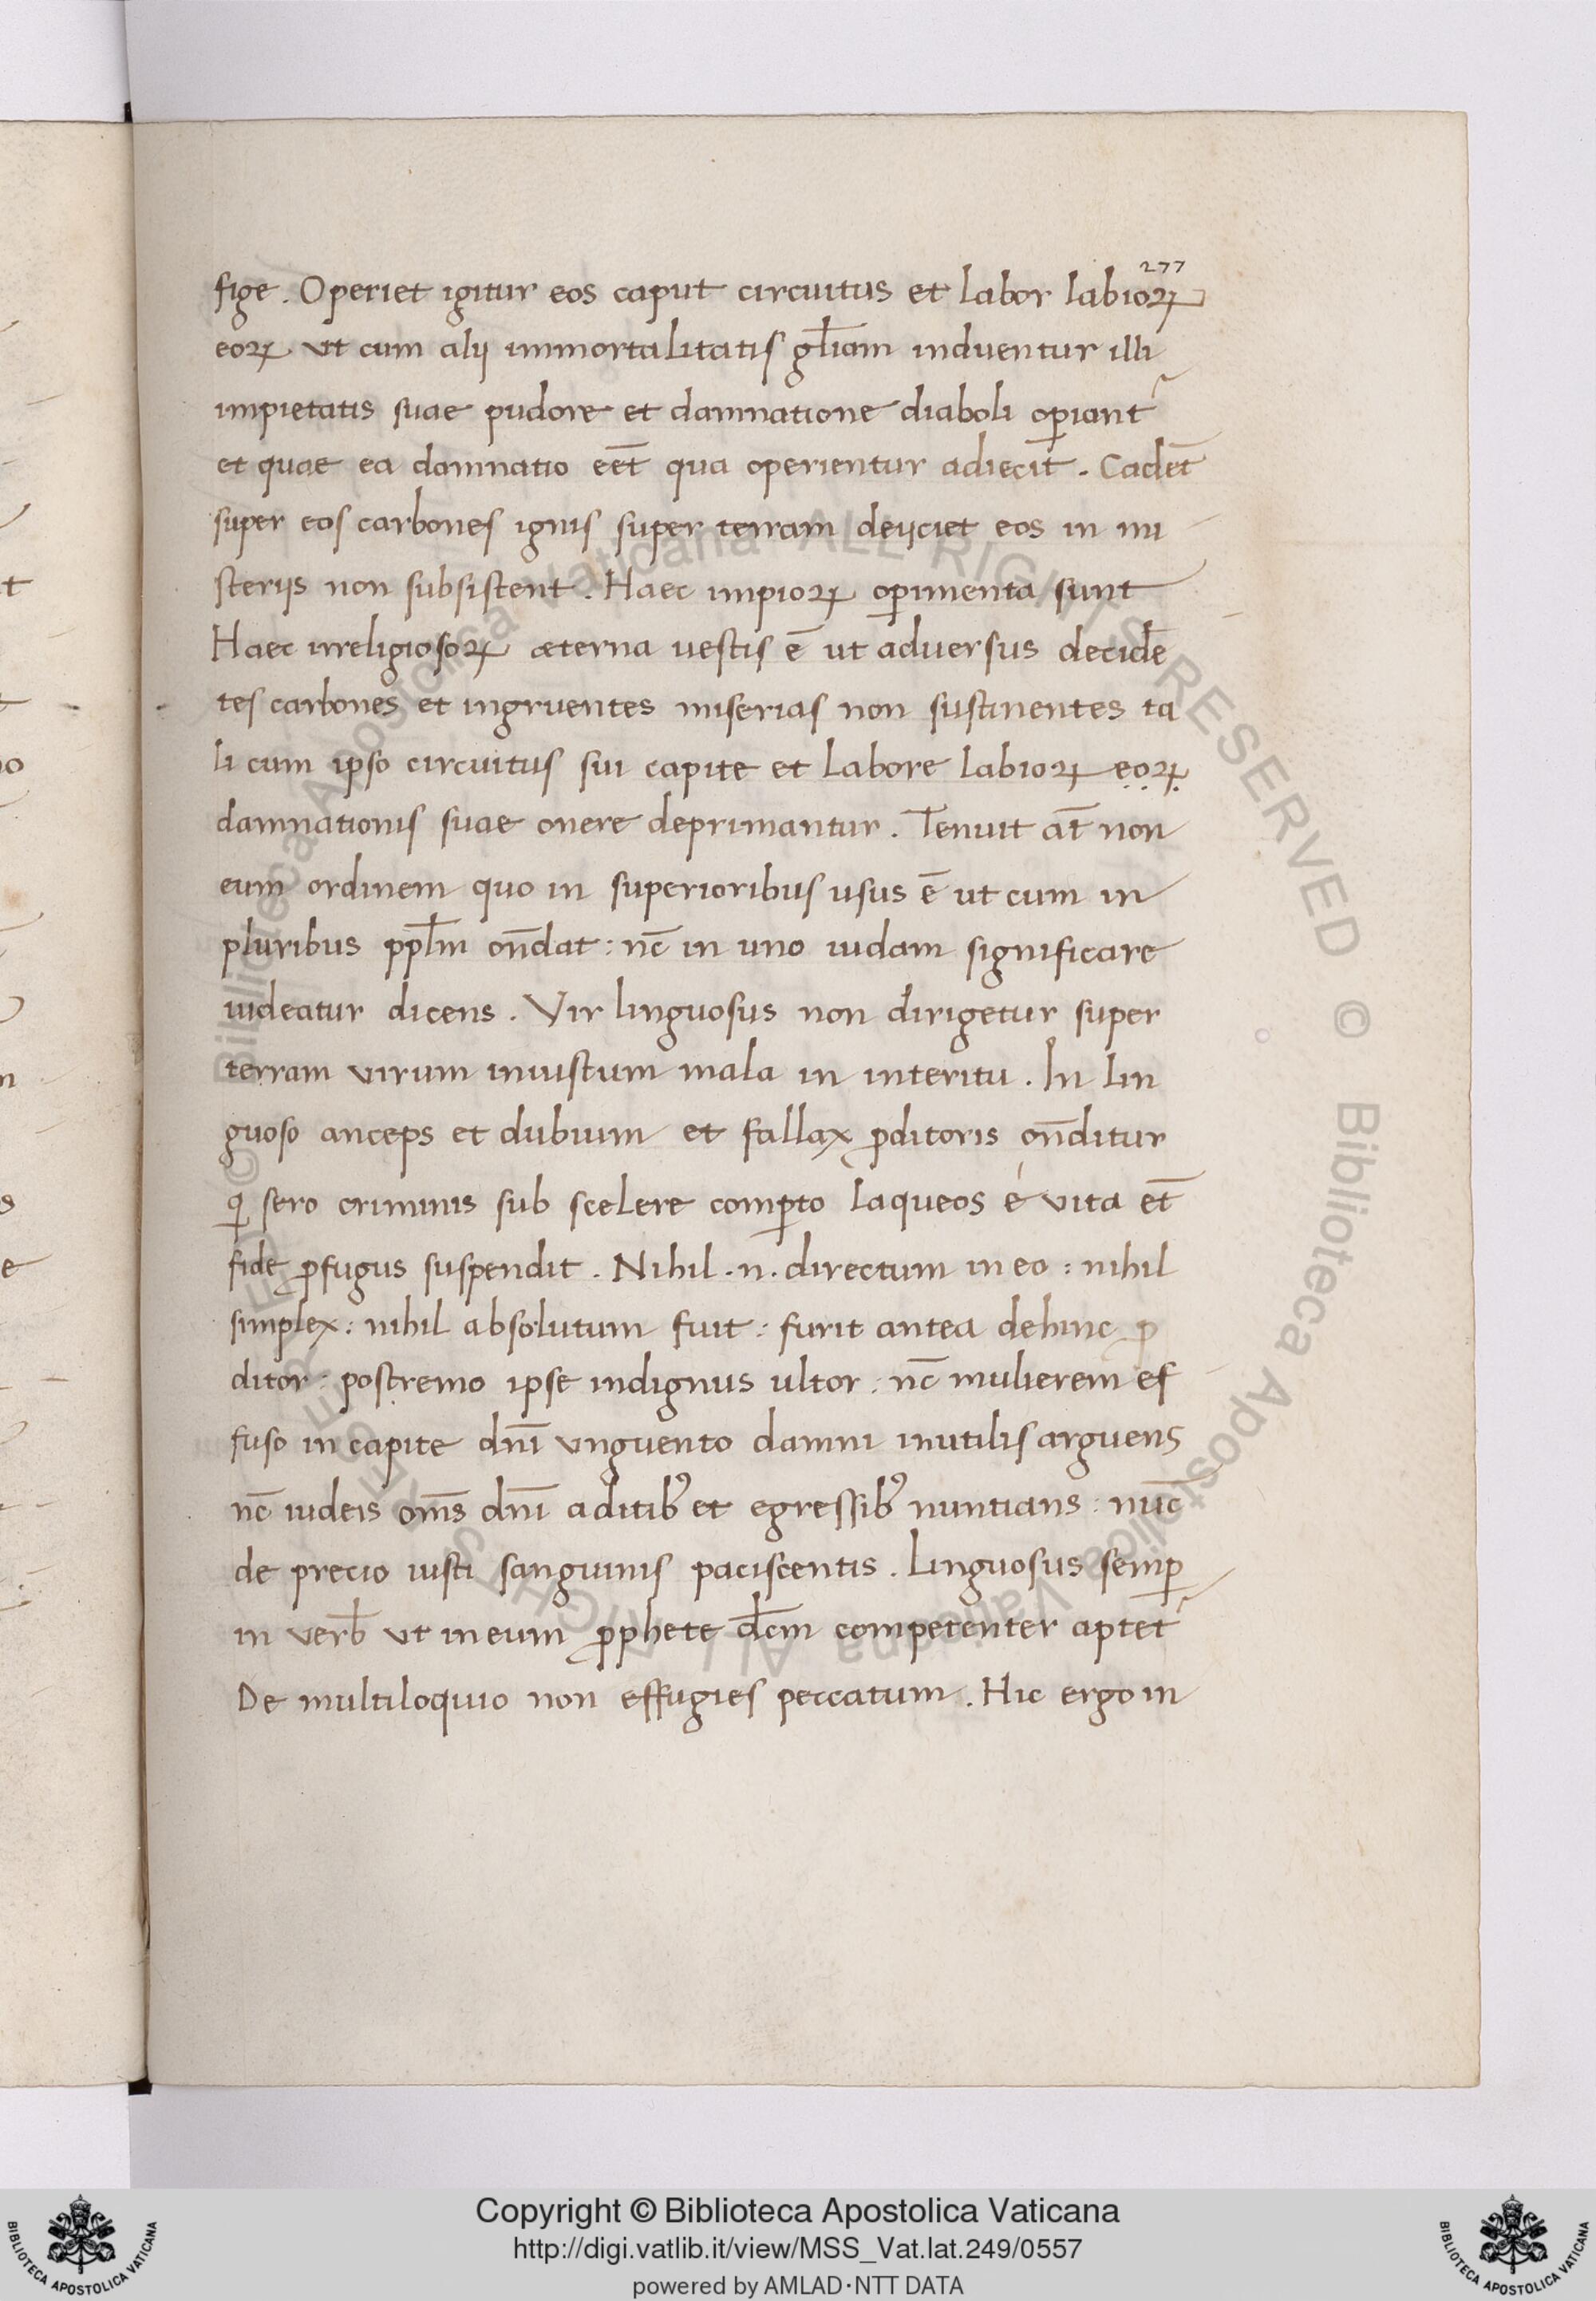 277
fige. Operiet igitur eos caput circuitus et labor labioꝝ
eoꝝ ut cum alij immortalitatis gl̄iam induentur illi
impietatis suae pudore et damnatione diaboli oꝑiant᷑
et quae ea damnatio eēt qua operientur adiecit. Cadēt
super eos carbones ignis super terram deijciet eos in mi
sterijs non subsistent. Haec impioꝝ oꝑimenta sunt
Haec irreligiosoꝝ aeterna uestis ē ut aduersus decidē
tes carbones et ingruentes miserias non sustinentes ta
li cum ipso circuitus sui capite et labore labioꝝ eoꝝ
damnationis suae onere deprimantur. Tenuit at̄ non
eum ordinem quo in superioribus usus ē ut cum in
pluribus ppl̄m on̄dat: nc̄ in uno iudam significare
uideatur dicens. Vir linguosus non dirigetur super
terram virum iniustum mala in interitu. In lin
guoso anceps et dubium et fallax ꝓditoris on̄ditur
qi sero criminis sub scelere comꝑto laqueos é vita et̄
fide ꝓfugus suspendit. Nihil .n. directum in eo: nihil
simplex: nihil absolutum fuit: furit antea dehinc ꝓ
ditor: postremo ipse indignus ultor: nc̄ mulierem ef
fuso in capite dn̄i unguento damni inutilis arguens
nc̄ iudeis om̄s dn̄i aditibꝰ et egressibꝰ nuntians: nūc
de precio iusti sanguinis paciscentis. Linguosus semꝑ
in verb̄ ut in eum ꝓphete dc̄m competenter aptet᷑
De multiloquio non effugies peccatum. Hic ergo in
Copyright © Biblioteca Apostolica Vaticana
http://digi.vatlib.it/view/MSS_Vat.lat.249/0557
powered by AMLAD·NTT DATA
BIBLIOTECA APOSTOLICA VATICANA
BIBLIOTECA APOSTOLICA VATICANA